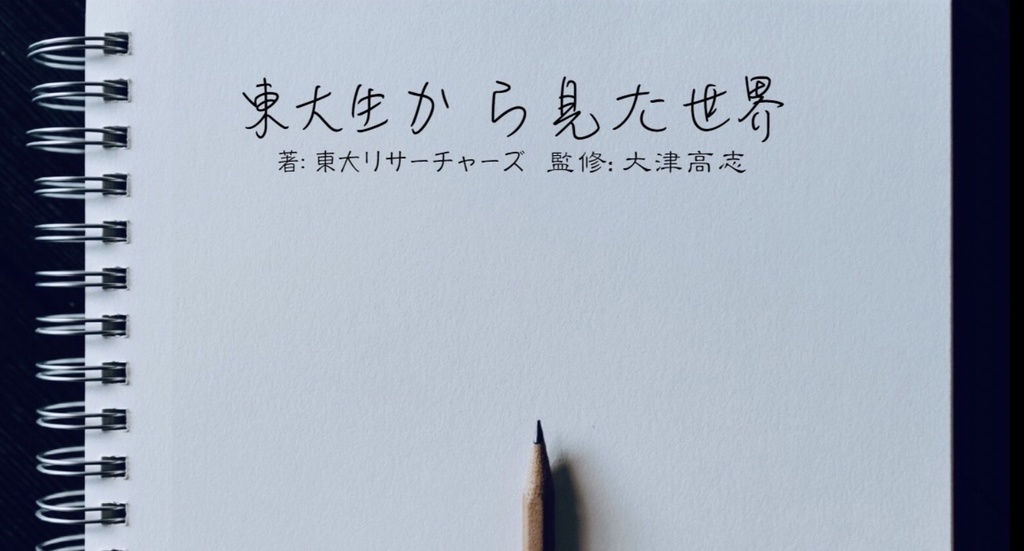 東大生から見た世界
著: 東大リサーチャーズ 監修: 大津高志